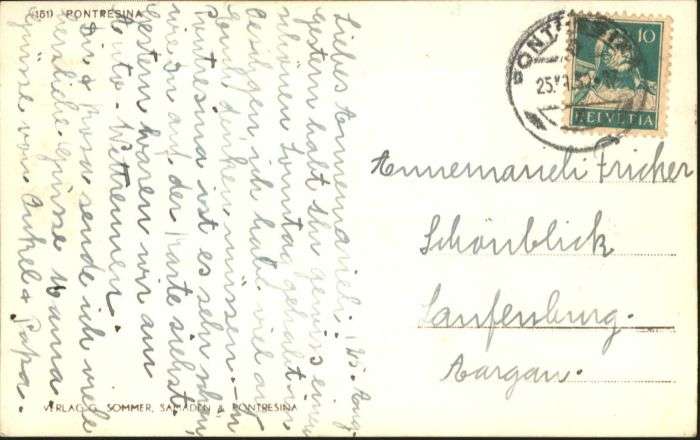 (151) PONTRESINA
Liebes Annemarieli! 25. Aug.
gestern habt Ihr gewiss einen
schönen Sonntag gehabt in
ich hab viel an
Euch denken müssen. In
Pontresina ist es sehr schön
wie Du auf der Karte siehst.
Gestern waren wir am
Auto-Wettrennen.
Dir & Rosa sende ich viele
herzliche Grüsse Mama
Grüsse von Onkel & Papa.
VERLAG G. SOMMER, SAMADEN & PONTRESINA
PONTRESINA
25.
10
HELVETIA
Annemarieli Fricker
Schönblick
Laufenburg.
Aargau.